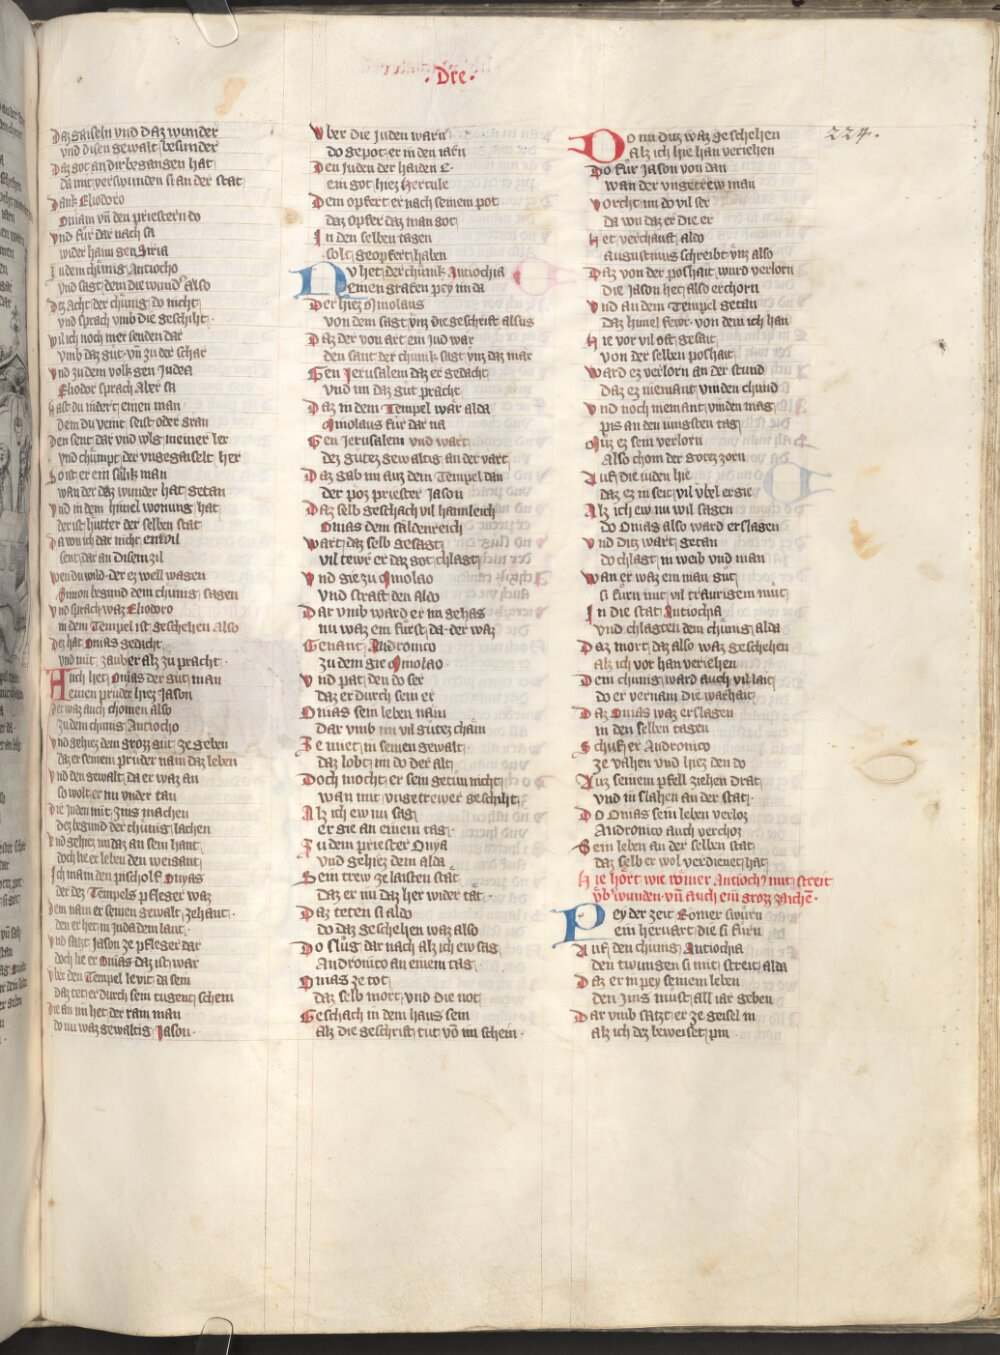 · Dre ·
224.
Daz gaiseln vnd daz wunder
vnd disen gewalt besunder
Daz got an dir begangen hat
da mit verswunden si an der stat
Dank Eliodoro
Oniam vn̄ den priestern do
vnd fůr dar nach sa
wider haim gen Siria
Zu dem chůnig Antiocho
vnd sagt dem die wund' also
Dez acht der chůnig do nicht
vnd sprach vmb die geschiht
wil ich noch mer senden dar
vmb daz gůt vn̄ zu der schar
vnd zu dem volk gen Judea
Eliodor sprach aber sa
Hast du indert einen man
Dem du veint seist oder gran
Den sent dar vnd wlg meiner ler
vnd chůmpt der vngegaiselt her
So ist er ein sälik man
wan der daz wunder hat getan
vnd in dem himel wonung hat
der ist hůtter der selben stat
Da von ich dar nicht enwil
sent dar an disem zil
wen du wild der ez well wagen
Symon begund dem chůnig sagen
vnd sprach waz Eliodoro
in dem Tempel ist geschehen also
Dez hat Onias gedacht
vnd mit zauber alz zu pracht
Auch het Onias der gůt man
einen průder hiez Jason
Der waz auch chomen also
zu dem chůnig Antiocho
vnd gehiez dem grozz gůt ze geben
daz er seinem průder näm daz leben
vnd den gewalt da er waz an
so wolt er im vnder tan
Die Juden mit zins machen
Dez begund der chůnig lachen
vnd gehiez im daz an sein hant
doch lie er leben den weigant
Ich main den pischolf Onyas
der dez Tempels pfleger waz
Dem nam er seinen gewalt zehant
den er het in Juda dem lant
vnd satzt Jason ze pfleger dar
doch lie er Onias daz ist war
vber den Tempel levit da sein
daz tet er durch sein tugent schein
Die an im het der rain man
do nu waz gewaltig Jason
Vber die Juden warn
do gepot er in den iarn
Den Juden der haiden e
ein got hiez Hercule
Dem opfert er nach seinem pot
daz opfer daz man got
In den selben tagen
solt geopfert haben
Nv het der chůnik Antiochia
einen grafen pey im da
Der hiez Omolaus
von dem sagt vnz die geschrift alsus
Daz der von art ein Jud war
den sant der chunik sagt vnz daz mär
Gen Jerusalem daz er gedacht
vnd im daz gůt pracht
Daz in dem Tempel wär alda
Omolaus fůr dar na
Gen Jerusalem vnd wart
dez gůtez gewaltig an der vart
Daz gab im auz dem Tempel dan
der pöz priester Jason
Daz selb geschach vil hainleich
Onias dem säldenreich
Wart daz selb gesagt
vil tewr er daz got chlagt
Vnd gie zu Omolao
vnd straft den also
Dar vmb ward er im gehas
nu waz ein fůrst da der waz
Genant Andronico
zu dem gie Omolao
Vnd pat den do ser
daz er durch sein er
Onias sein leben näm
Dar vmb im vil gůtez chäm
Ze miet in seinen gewalt
daz lobt im do der alt
Doch mocht er sein getůn nicht
wan mit vngetrewer geschiht
Alz ich ew nu sag
er gie an einem tag
Zu dem priester Onya
vnd gehiez dem alda
Sein trew ze laisten stät
daz er im daz her wider tät
Daz teten si aldo
do daz geschehen waz also
Do slůg dar nach alz ich ew sag
Andronico an einem tag
Onias ze tot
daz selb mort vnd die not
Geschach in dem haus sein
alz die geschrift tůt vō im schein
Do nu ditz waz geschehen
alz ich hie han veriehen
Do fůr Jason von dan
wan der vngetrew man
Vorcht im do vil ser
da wu daz er die er
Het verchauft aldo
Augustinus schreibt vnz also
Daz von der poshait wurd verlorn
die Jason het also erchorn
Vnd an dem Tempel getan
daz himel fewr von dem ich han
Hie vor vil oft gesait
von der selben poshait
Ward ez verlorn an der stund
daz ez niemant vinden chund
Vnd noch niemant vinden mag
pis an den iungsten tag
Můz ez sein verlorn
Also chom der gotez zorn
Auf die iuden hie
daz ez in seit vil vbel ergie
Alz ich ew nu wil sagen
do Onias also ward erslagen
Vnd ditz wart getan
do chlagt in weib vnd man
Wan er waz ein man gůt
si fůrn mit vil traurigem můt
In die stat Antiochia
vnd chlagten dem chůnig alda
Daz mort daz also waz geschehen
alz ich vor han veriehen
Dem chunig ward auch vil lait
do er vernam die warhait
Daz Onias waz erslagen
in den selben tagen
Schuf er Andronico
ze vahen vnd hiez den do
Auz seinem pfell ziehen drat
vnd in slahen an der stat
Do Onias sein leben verloz
Andronico auch verchoz
Sein leben an der selben stat
daz selb er wol verdienet hat
Hie hört wie römer Antioch' mit streit
vb'wunden vn̄ auch ein groz zaichē
Pey der zeit Romer swůrn
ein hervart die si fůrn
Auf den chunig Antiochia
den twungen si mit streit alda
Daz er in pey seinem leben
den zins můst all iar geben
Dar vmb satzt er ze geisel in
alz ich dez beweiset pin